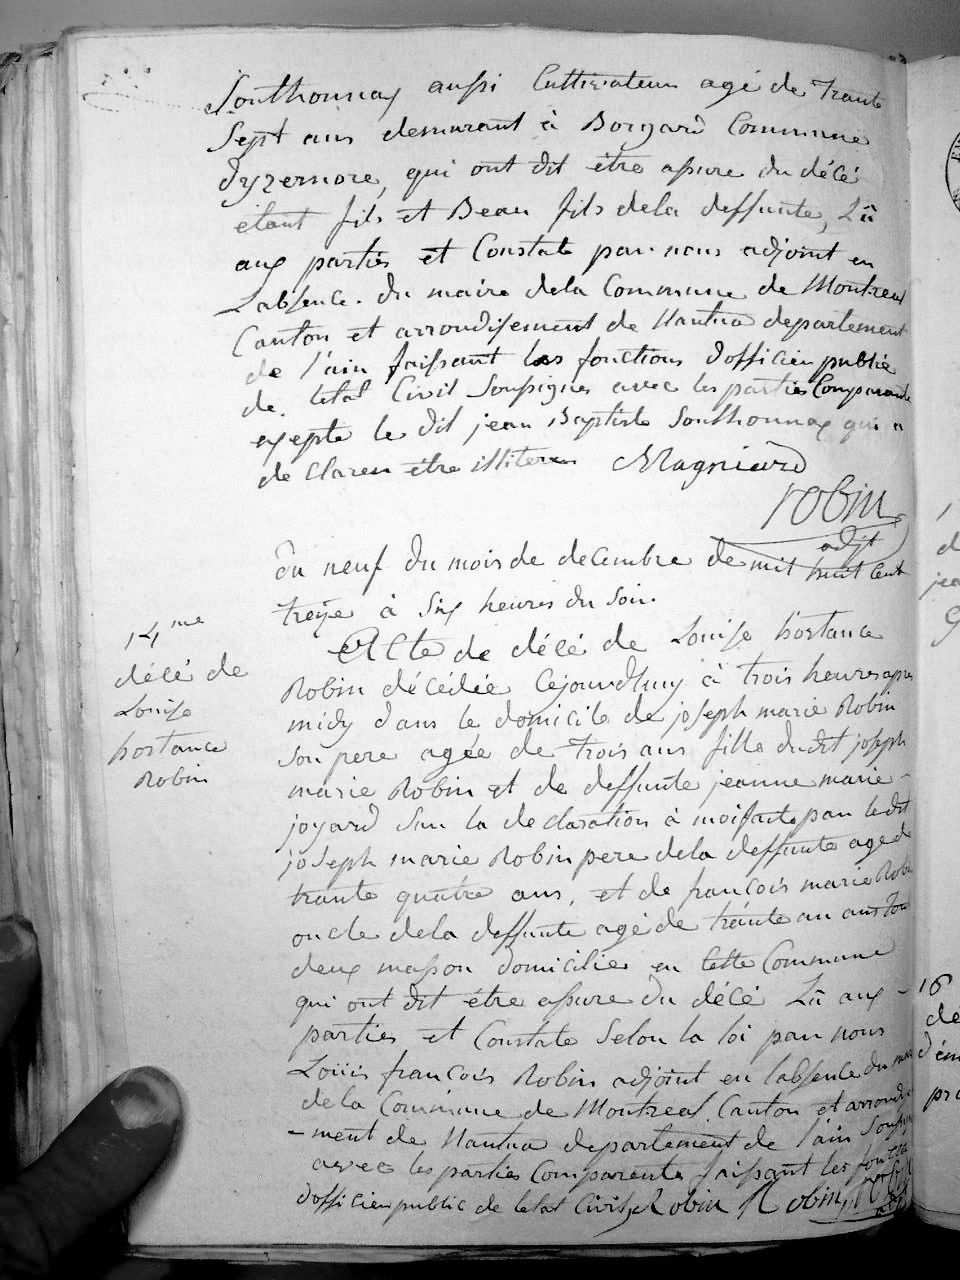 Sonthonnax aussi Cultivateur agé de trante
Sept ans demurant à Borgard Commune
dyzernore, qui ont dit être assure du décé
étant fils et Beau fils dela deffunte, Lû
aux parties et Constate par nous adjoint en
Labsence du maire dela Commune de Montreal
Canton et arrondisement de Nantua departement
de l'ain faissant les fonctions dofficier publie
de letat Civil Soussignes avec les parties Comparante
exepte le dit jean Baptiste Sonthonnax qui a
de Clarer être illiteres Magniard
robin
adjt
du neuf du mois de decembre de mil huit Cent
treize à Six heures du Soir.
14me
décé de
Louise
hostance
Robin
Acte de décé de Louise hostance
Robin décédée Cejourdhuy à trois heures apres
midy dans le domicile de joseph marie Robin
Son pere agée de trois ans fille dudit joseph
marie Robin et de deffunte jeanne marie
joyard Sur la declaration à moi faite par ledit
joseph marie Robin pere dela deffunte age de
trante quatre ans, et de francois marie Robin
oncle dela deffunte agé de trante un ans tou
deux masson domicilie en Cette Commune
qui ont dit être assure du décé Lû aux
parties et Constate Selon la loi par nous
Loüis francois Robin adjoint en labsence du maire
dela Commune de Montreal Canton et arrondise
-ment de Nantua departement de l'ain Soussigne
avec les parties Comparante faissant les fonction
dofficier public de letat Civil, Robin Robin
16